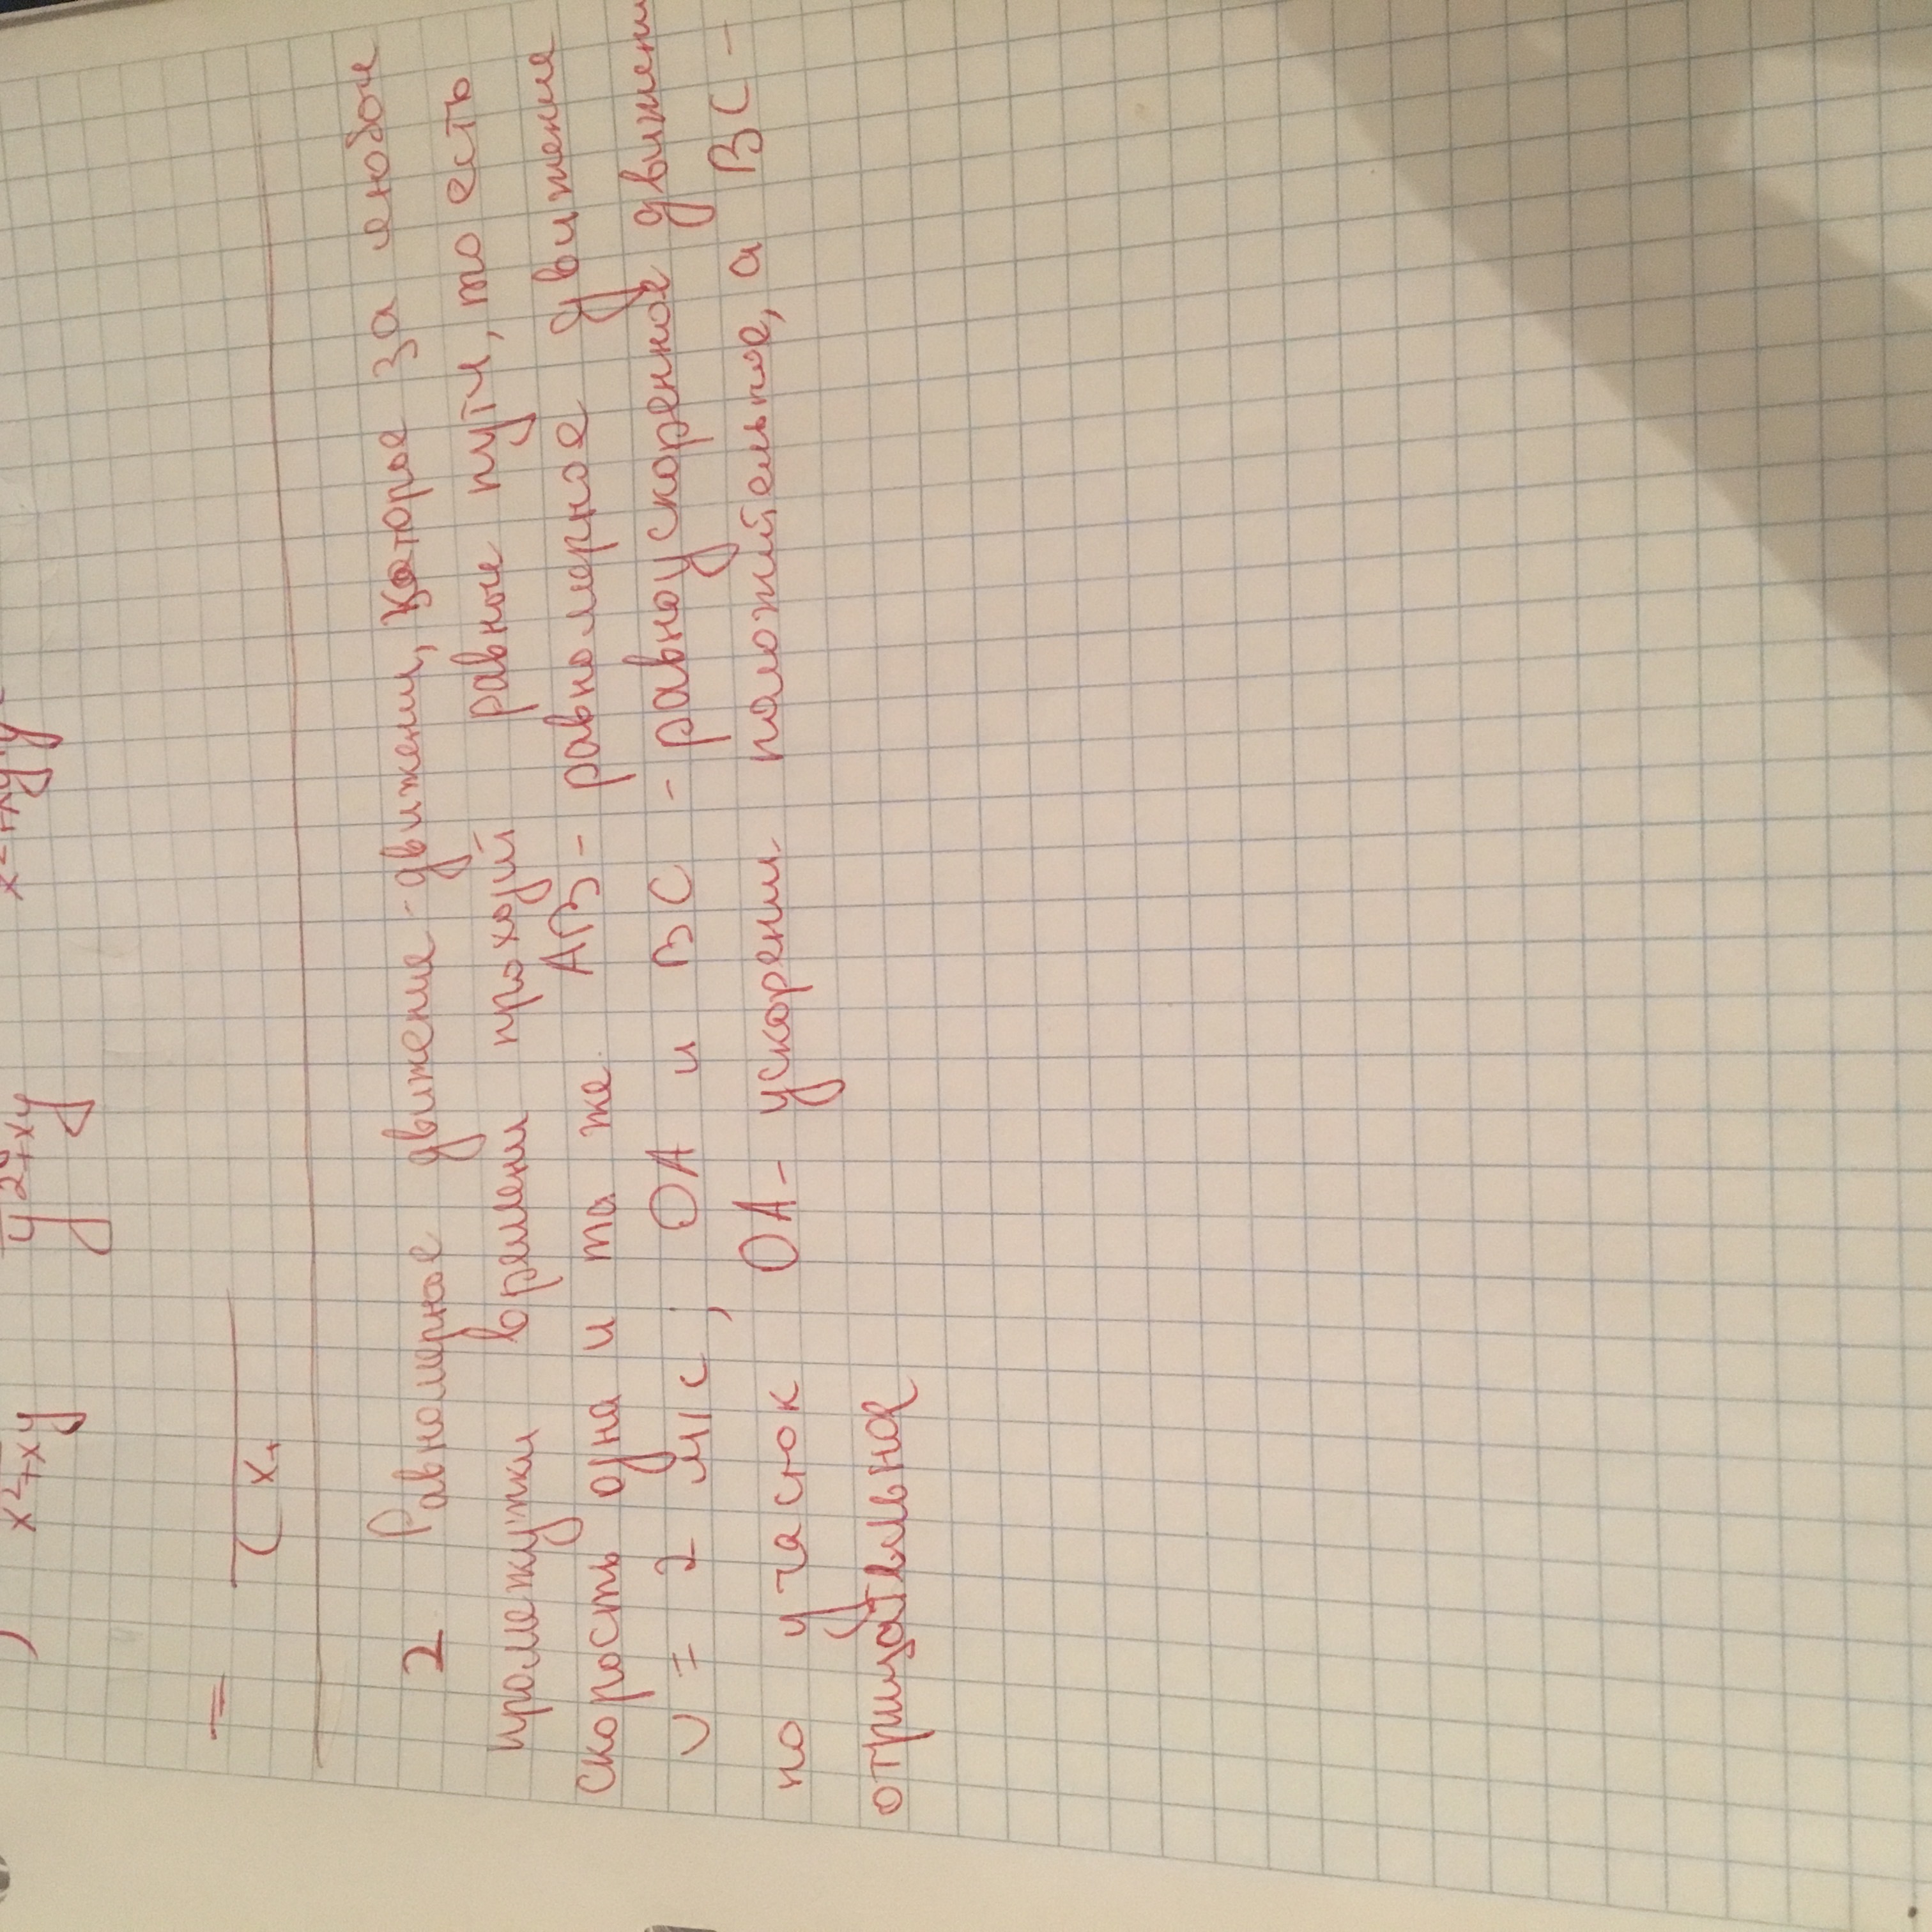 x²+xy
y²+xy
=
2 Равномерное движение - движении, которые за любой
промежутки времени проходий равные пути, то есть
скорость одна и та же. АВ - равномерное движение
υ = 2 м/с; ОА и ВС - равноускоренное движени
но участок ОА - ускорении положительное, а ВС -
отрицательное